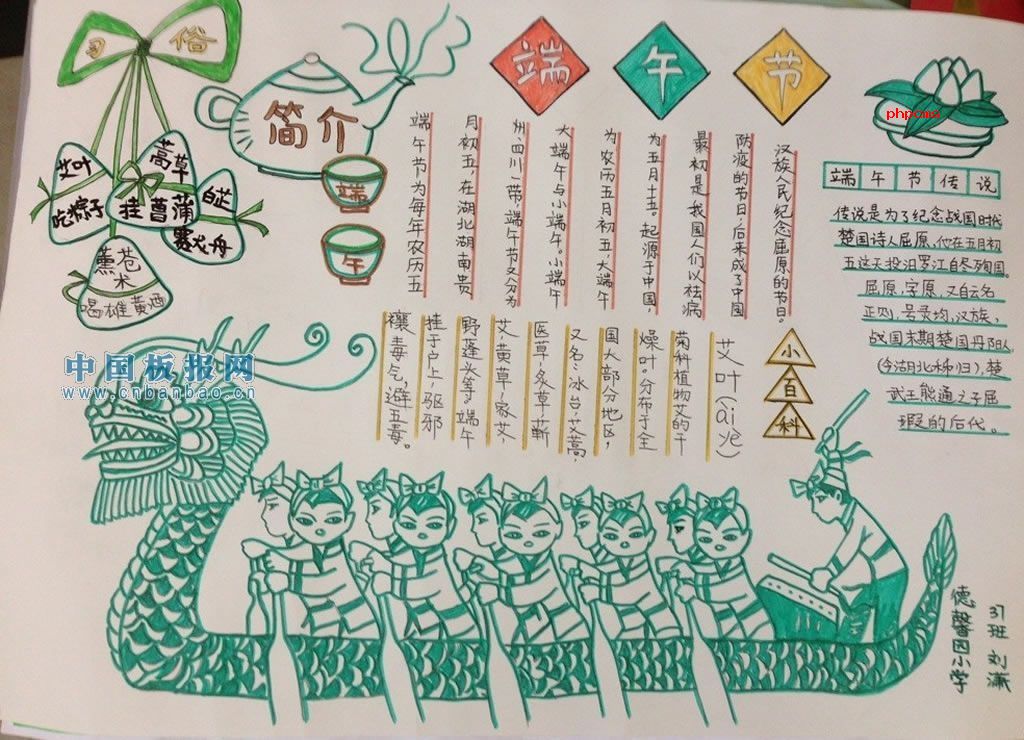 习俗
艾叶
吃粽子
蒿草
挂菖蒲
白芷
赛龙舟
薰苍
术
喝雄黄酒
简介
端
午
端午节
phpcms
端午节为每年农历五
月初五,在湖北湖南贵
州,四川一带,端午节又分为
大端午与小端午。小端午
为农历五月初五,大端午
为五月十五。起源于中国,
最初是我国人们以祛病
防疫的节日,后来成了中国
汉族人民纪念屈原的节日。
端午节传说
传说是为了纪念战国时代
楚国诗人屈原,他在五月初
五这天投汨罗江自尽殉国。
屈原,字原,又自云名
正则,号灵均,汉族,
战国末期楚国丹阳人
(今湖北秭归),楚
武王熊通之子屈
瑕的后代。
小百科
艾叶(ài ye)
菊科植物艾的干
燥叶。分布于全
国大部分地区,
又名:冰台,艾蒿,
医草,灸草,蕲
艾,黄草,家艾
野蓬头等,端午
挂于户上,驱邪
禳毒气,避五毒。
中国板报网
www.cnbanbao.cn
德馨园小学
37班 刘潇